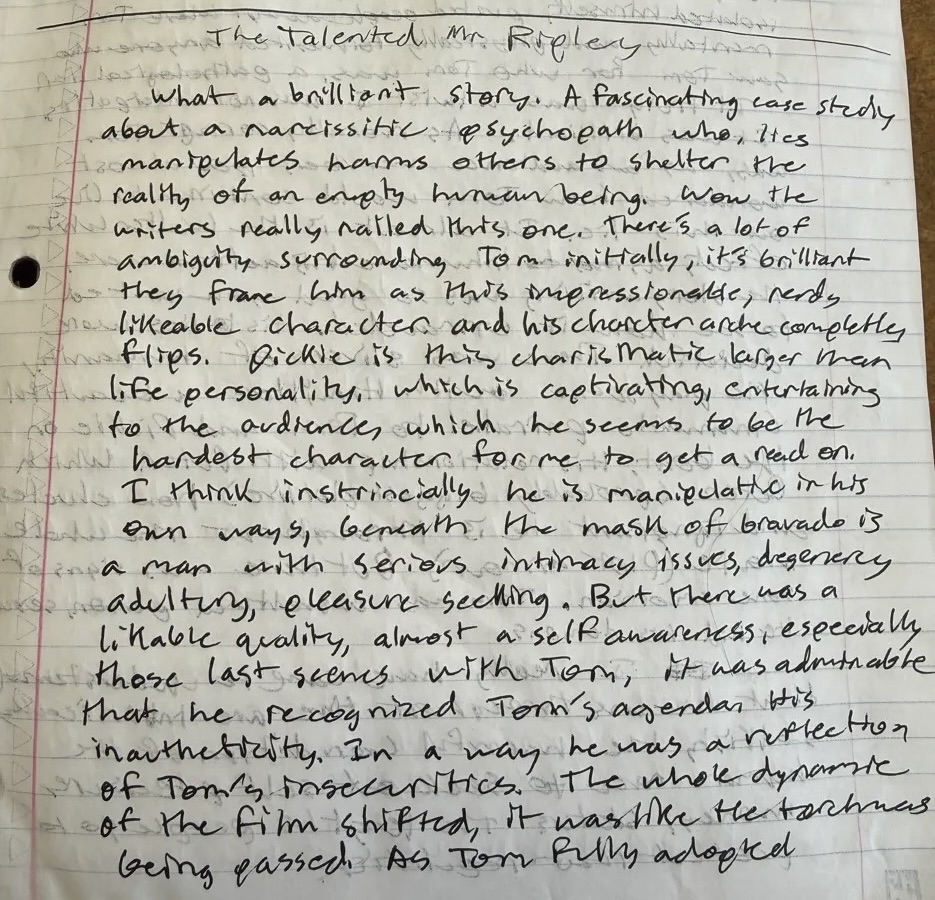 The Talented Mr Ripley
What a brilliant story. A fascinating case study
about a narcissitic psychopath who, lies
manipulates harms others to shelter the
reality of an empty human being. Wow the
writers really nailed this one. There's a lot of
ambiguity surrounding Tom initially, it's brilliant
they frame him as this impressionable, nerdy
likeable character. and his charcter arche completley
flips. Dickie is this charismatic larger than
life personality, which is captivating, entertaining
to the audience, which he seems to be the
hardest character for me to get a read on.
I think instrincially he is manipulatic in his
own ways, beneath the mask of bravado is
a man with serious intimacy issues, degenercy
adultury, pleasure seeking. But there was a
likable quality, almost a self awareness, especially
those last scenes with Tom, it was adminable
that he recognized Tom's agenda, His
inautheticity. In a way he was a reflection
of Tom's insecurities. The whole dynamic
of the film shifted, it was like the torch was
being passed. As Tom fully adopted